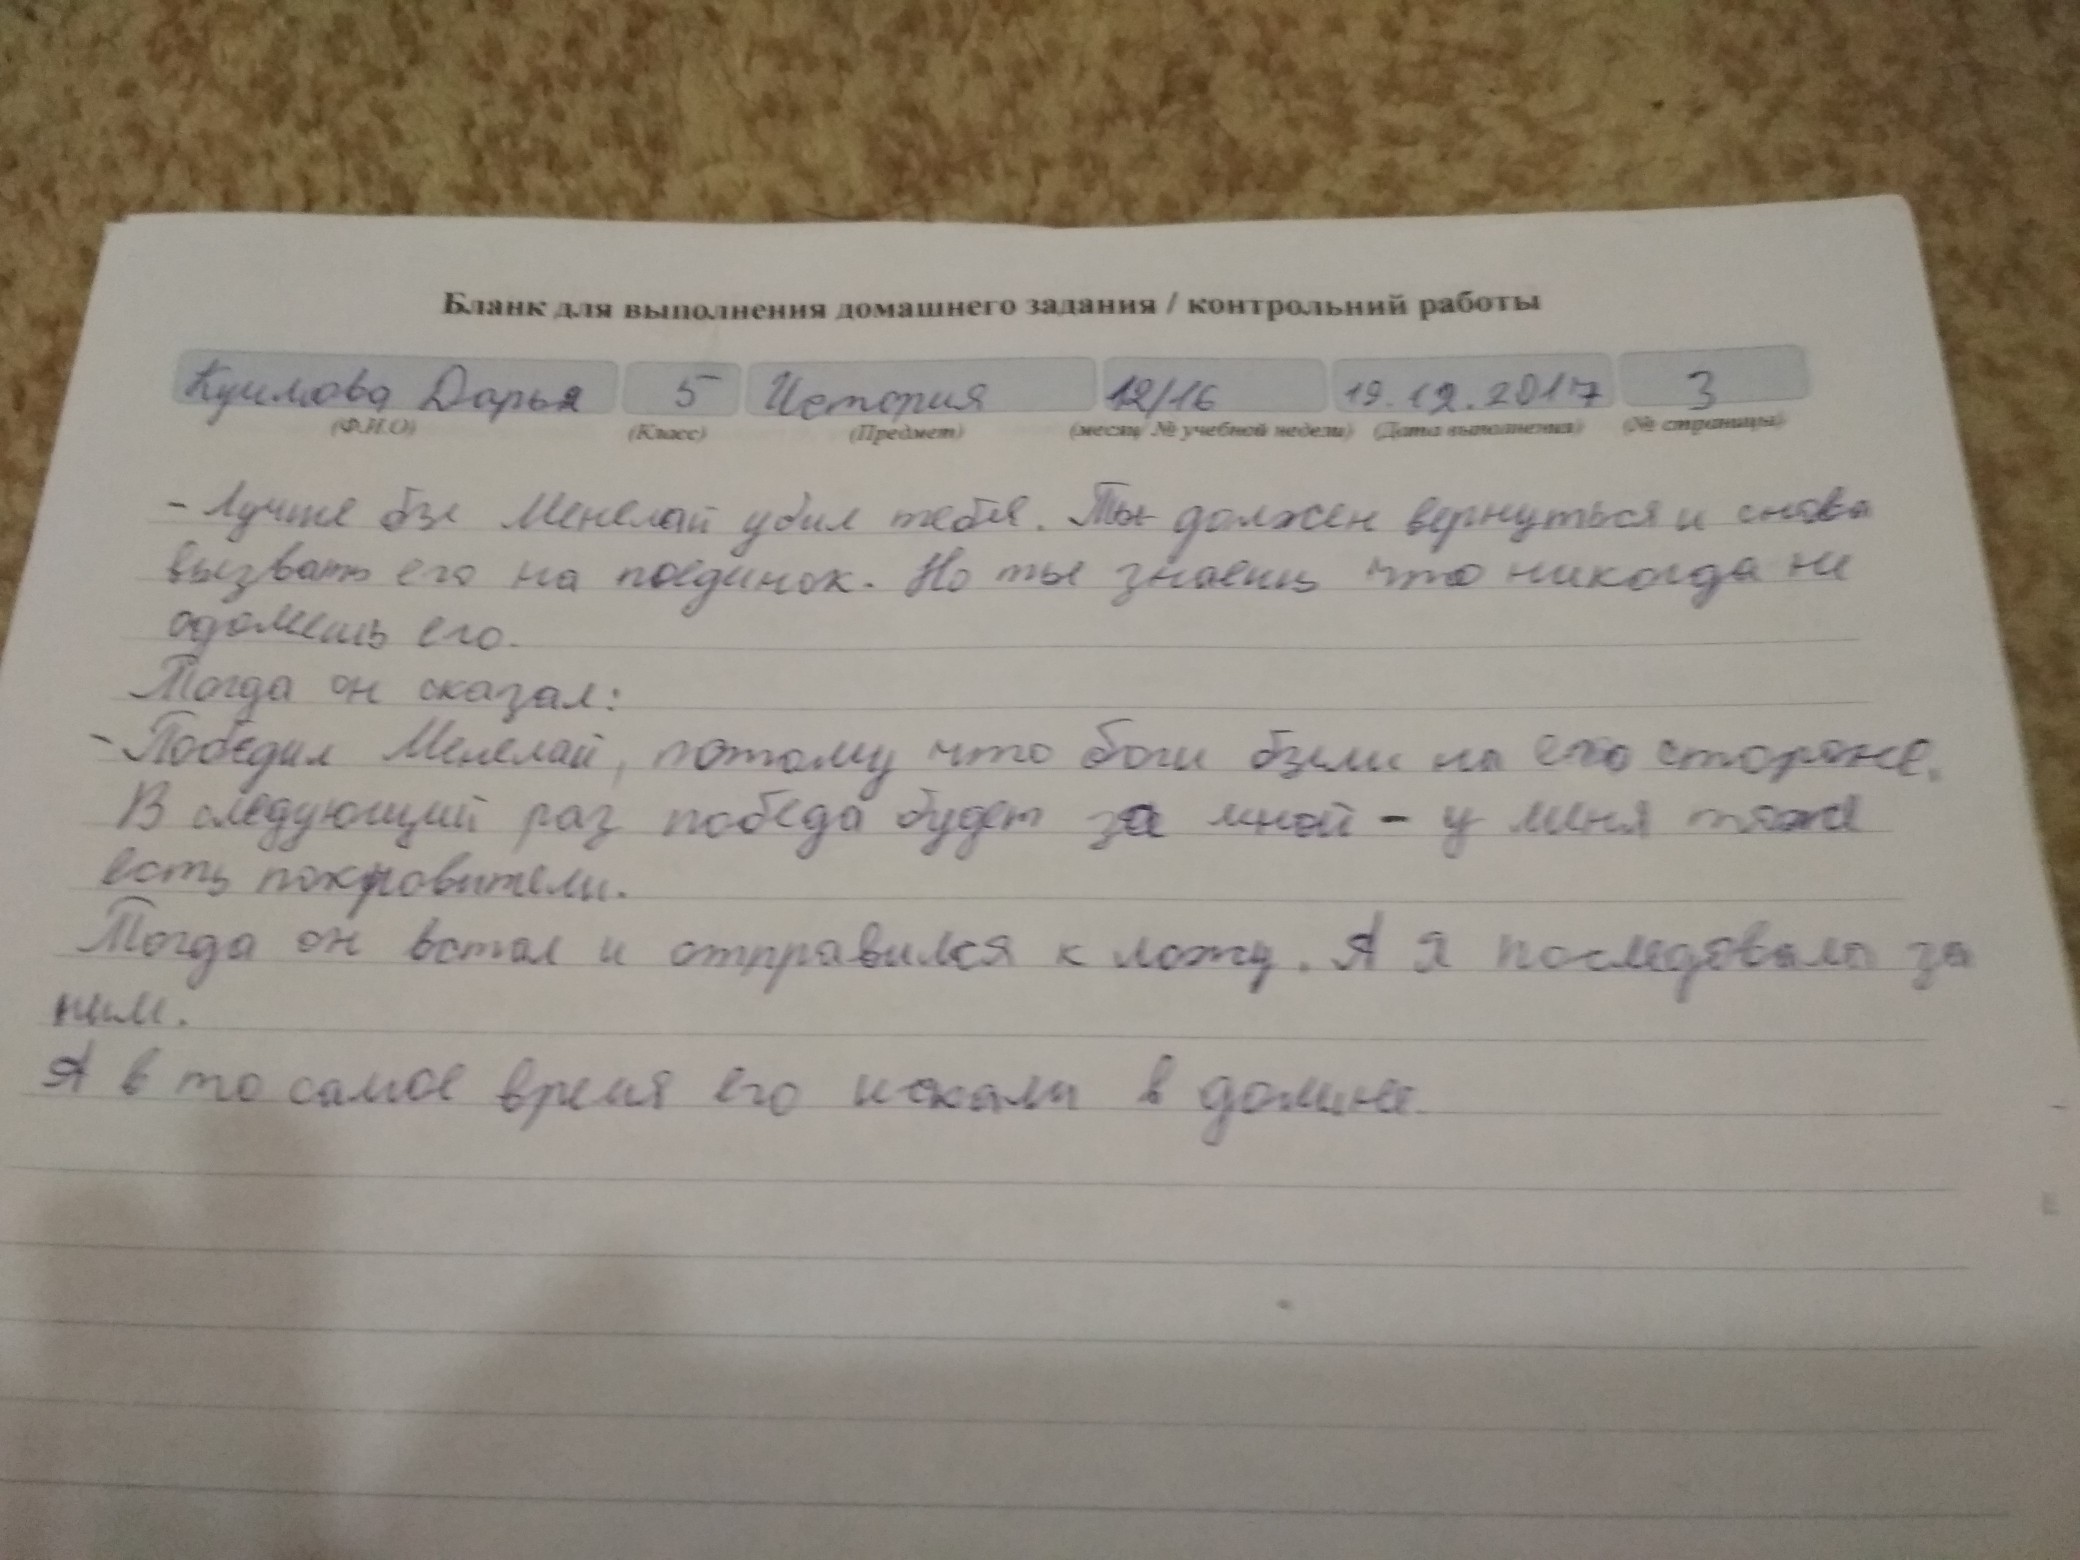 Бланк для выполнения домашнего задания / контрольний работы
Куимова Дарья 5 История 12/16 19.12.2017 3
(Ф.И.О) (Класс) (Предмет) (месяц/ № учебной недели) (Дата выполнения) (№ страницы)
- Лучше бы Менелай убил тебя. Ты должен вернуться и снова
вызвать его на поединок. Но ты знаешь что никогда не
одомешь его.
Тогда он сказал:
- Победил Менелай, потому что боги были на его стороне.
В следующий раз победа будет за мной - у меня тоже
есть покровители.
Тогда он встал и отправился к ложу. А я последовала за
ним.
А в то самое время его искали в долине.